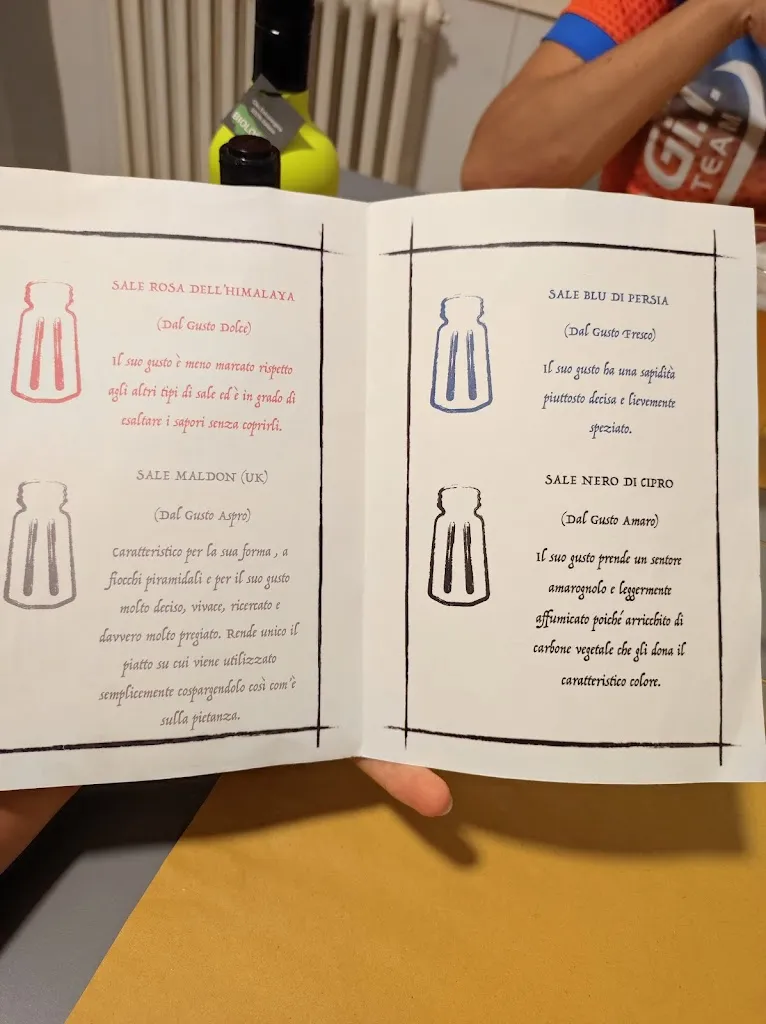 BIOLO
Gi.
TEAM
SALE ROSA DELL'HIMALAYA
(Dal Gusto Dolce)
Il suo gusto è meno marcato rispetto
agli altri tipi di sale ed è in grado di
esaltare i sapori senza coprirli.
SALE MALDON (UK)
(Dal Gusto Aspro)
Caratteristico per la sua forma , a
fiocchi piramidali e per il suo gusto
molto deciso, vivace, ricercato e
davvero molto pregiato. Rende unico il
piatto su cui viene utilizzato
semplicemente cospargendolo così com'è
sulla pietanza.
SALE BLU DI PERSIA
(Dal Gusto Fresco)
Il suo gusto ha una sapidità
piuttosto decisa e lievemente
speziato.
SALE NERO DI CIPRO
(Dal Gusto Amaro)
Il suo gusto prende un sentore
amarognolo e leggermente
affumicato poiché arricchito di
carbone vegetale che gli dona il
caratteristico colore.